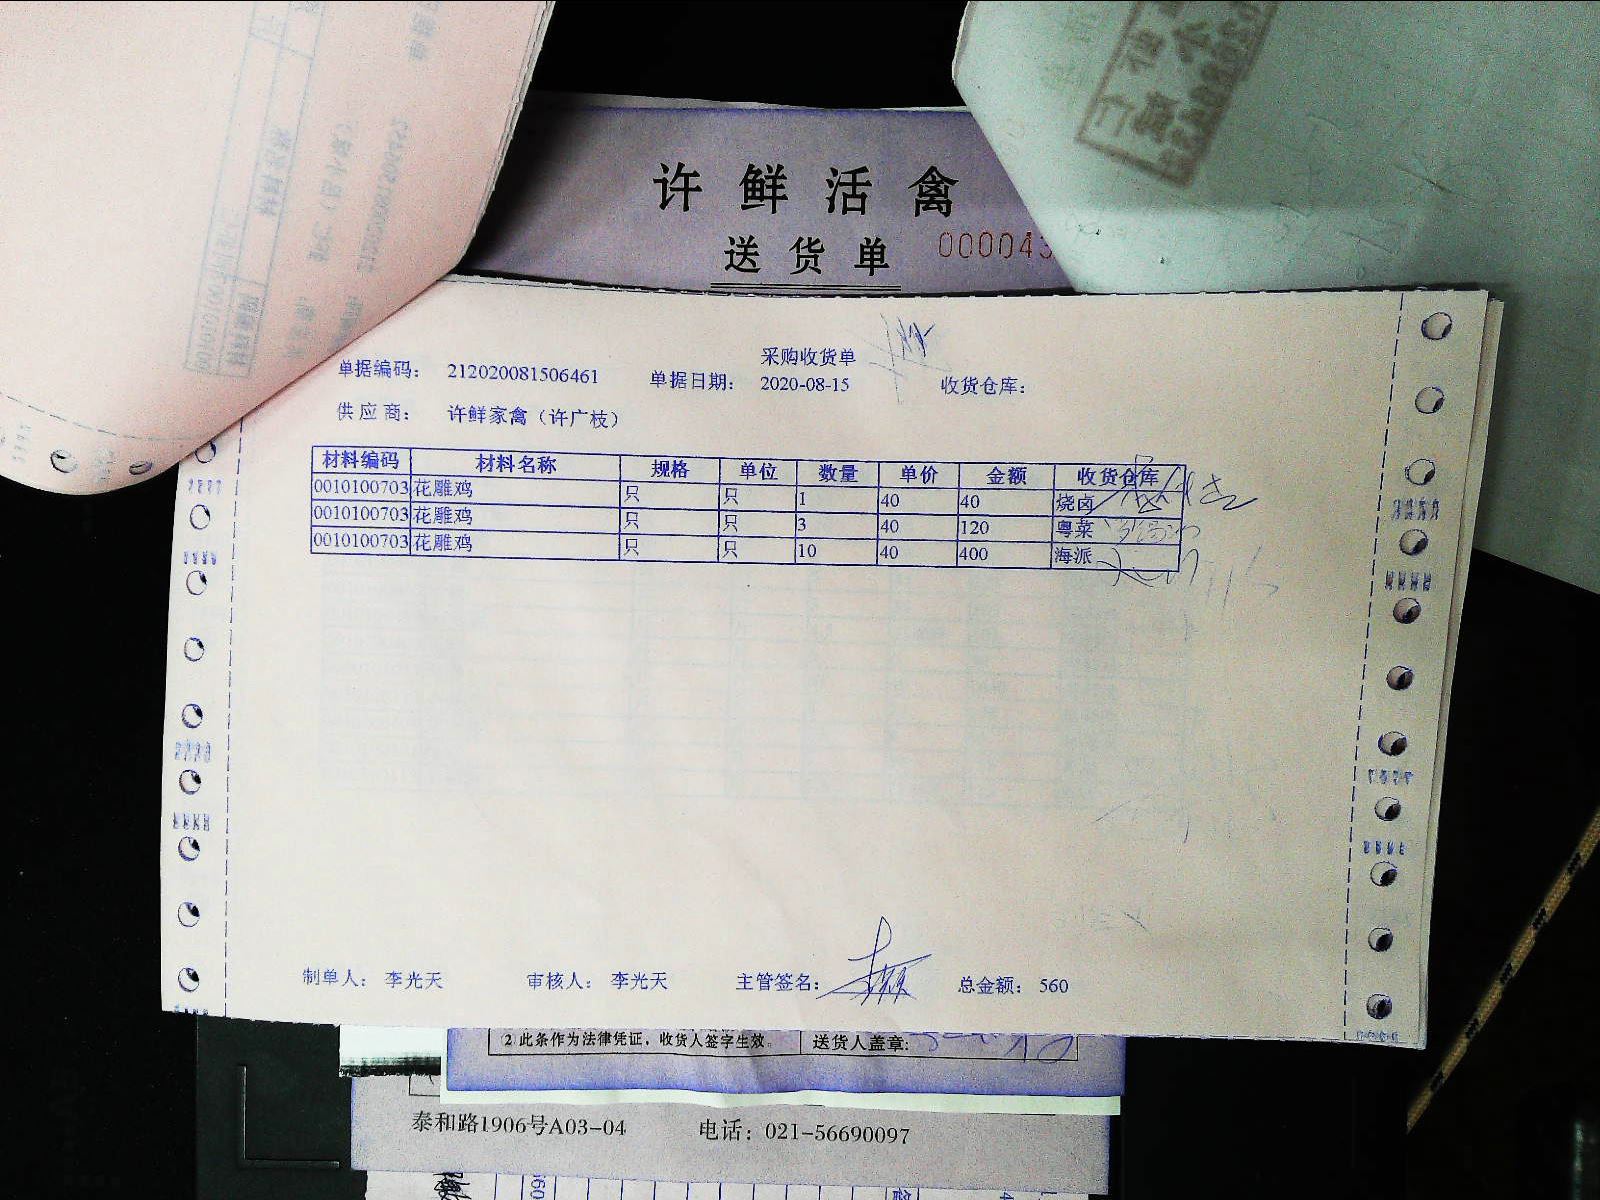 许鲜活禽
送货单 000043
采购收货单
单据编码： 212020081506461 单据日期： 2020-08-15 收货仓库：
供应商： 许鲜家禽（许广枝）
材料编码 材料名称 规格 单位 数量 单价 金额 收货仓库
0010100703 花雕鸡 只 只 1 40 40 烧卤
0010100703 花雕鸡 只 只 3 40 120 粤菜
0010100703 花雕鸡 只 只 10 40 400 海派
制单人： 李光天 审核人： 李光天 主管签名： 总金额： 560
②此条作为法律凭证，收货人签字生效。 送货人盖章:
泰和路1906号A03-04 电话：021-56690097